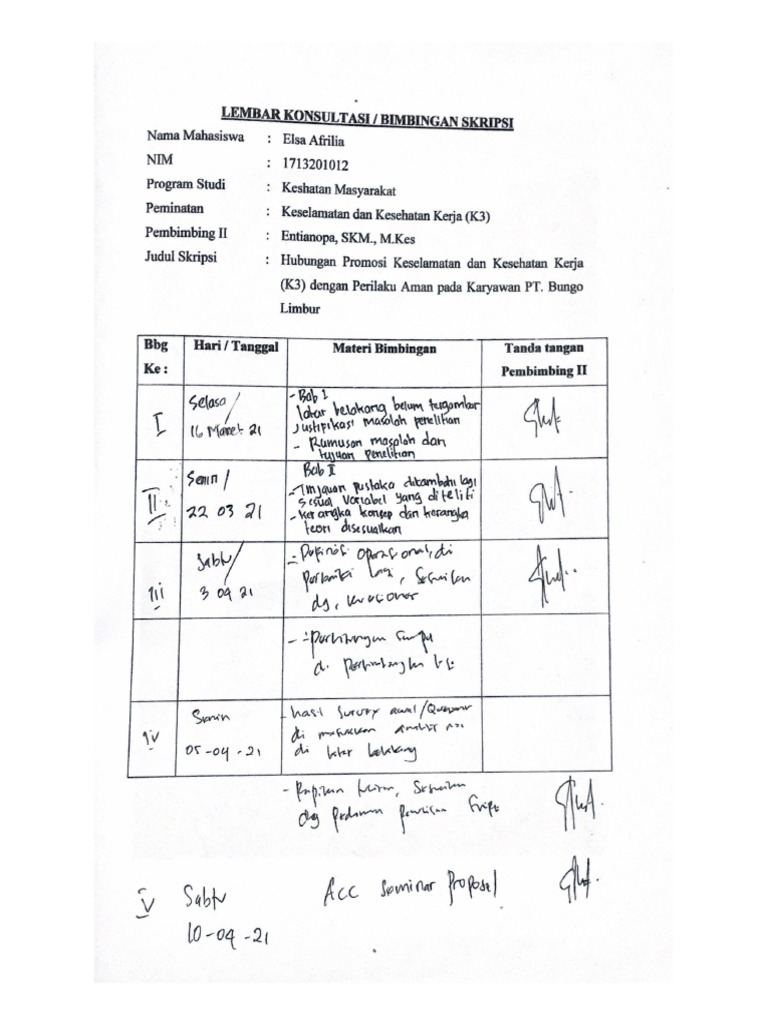 LEMBAR KONSULTASI / BIMBINGAN SKRIPSI
Nama Mahasiswa : Elsa Afrilia
NIM : 1713201012
Program Studi : Keshatan Masyarakat
Peminatan : Keselamatan dan Kesehatan Kerja (K3)
Pembimbing II : Entianopa, SKM., M.Kes
Judul Skripsi : Hubungan Promosi Keselamatan dan Kesehatan Kerja
(K3) dengan Perilaku Aman pada Karyawan PT. Bungo
Limbur
Bbg Ke : Hari / Tanggal Materi Bimbingan Tanda tangan Pembimbing II
I Selasa / 16 Maret 21
- Bab I
latar belakang belum tergambar
justifikasi masalah penelitian
- Rumusan masalah dan
tujuan penelitian
II Senin / 22 03 21
Bab II
- Tinjauan pustaka ditambahi lagi
sesuai variabel yang diteliti
- kerangka konsep dan kerangka
teori disesuaikan
iii Sabtu / 3 04 21
- Definisi operasional, di
perbaiki lagi, sesuaikan
dg, kuesioner
- Perhitungan
di
iv Senin 05-04-21
- hasil survey awal /
di masukkan
di latar belakang
- Rapikan, sesuaikan
dg pedoman penulisan
v Sabtu Acc Seminar Proposal
10-04-21